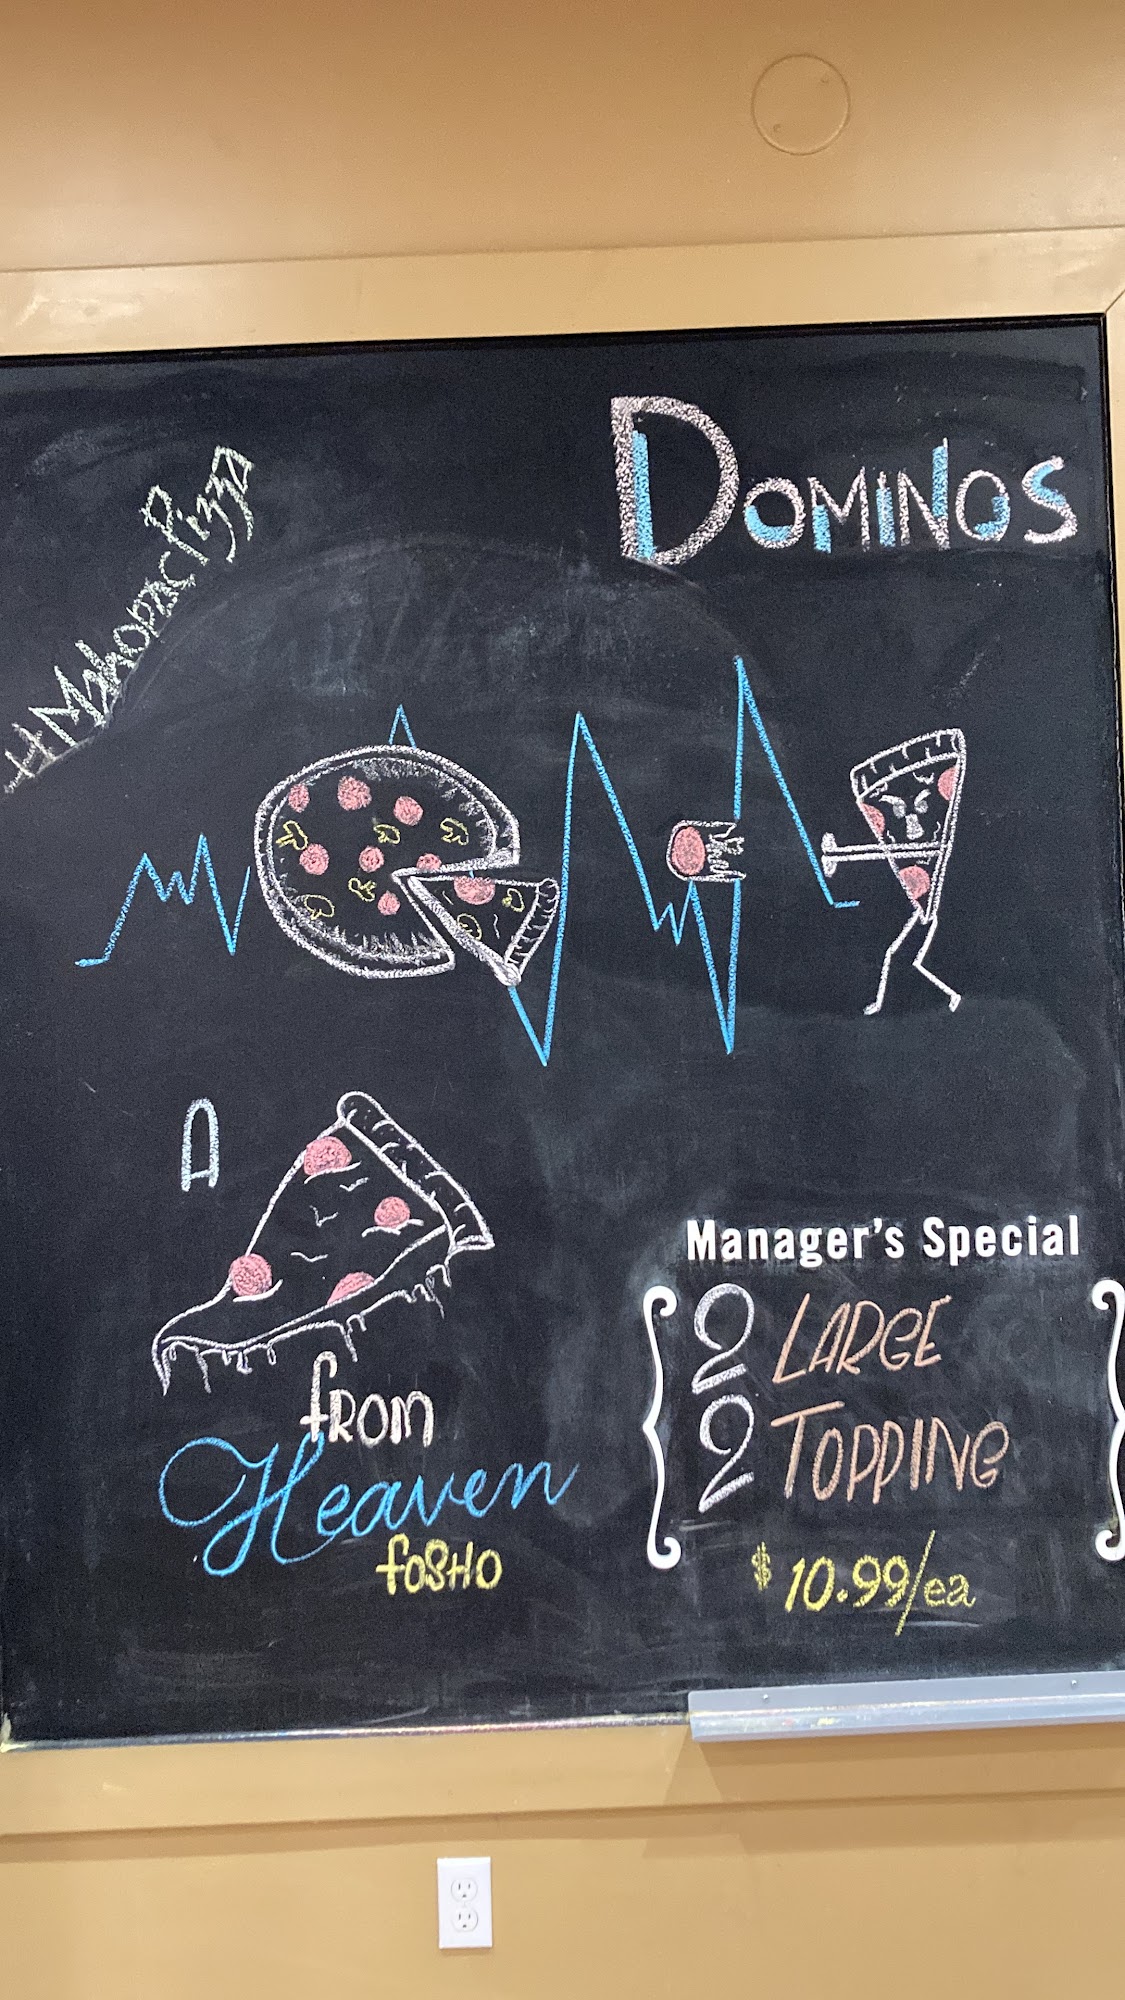 #MahopacPizza
DOMINOS
A
fROM
Heaven
foSHO
Manager's Special
2 LARGE
2 TOPPING
$10.99/ea